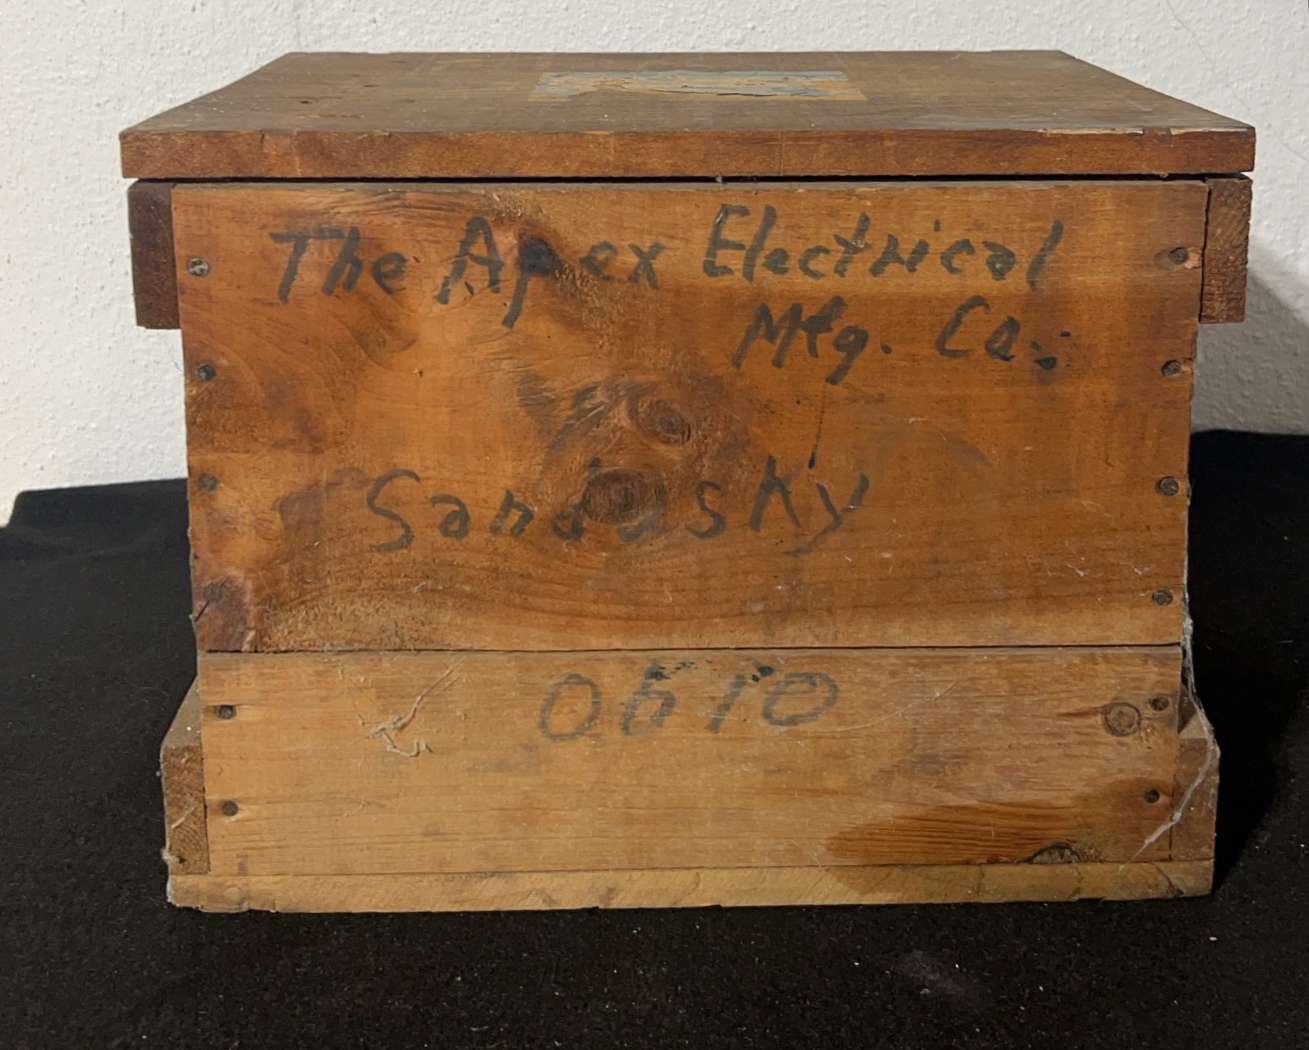 The Apex Electrical
Mfg. Co.
Sandusky
Ohio